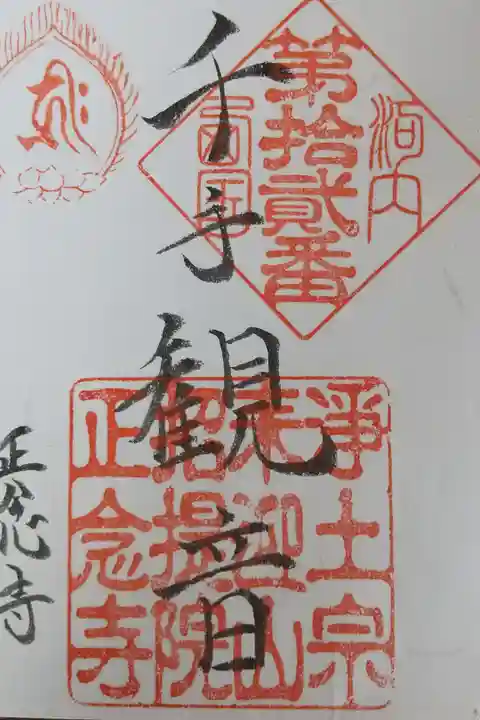 河内
第拾貳番
西国
千手観音
淨土宗
来迎山
提院
正念寺
正念寺